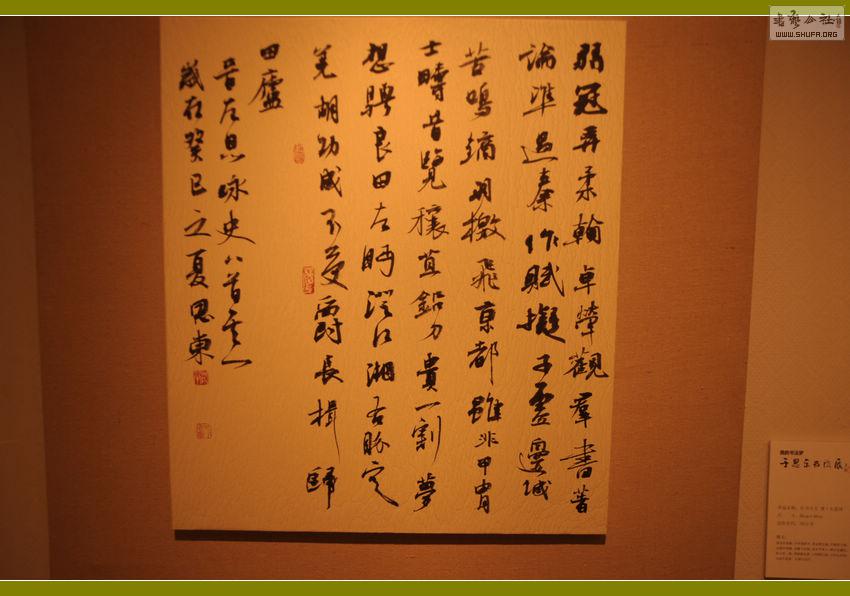 弱冠弄柔翰卓犖觀羣書著
論準過秦作賦擬子虛邊城
苦鳴鏑羽檄飛京都雖非甲胄
士疇昔覽穰苴鉛刀貴一割夢
想騁良圖左眄澄江湘右盻定
羌胡功成不受爵長揖歸
田廬
晉左思咏史八首其一
歲在癸巳之夏思東
書法公社
WWW.SHUFA.ORG
我的书法梦
于思东书法展